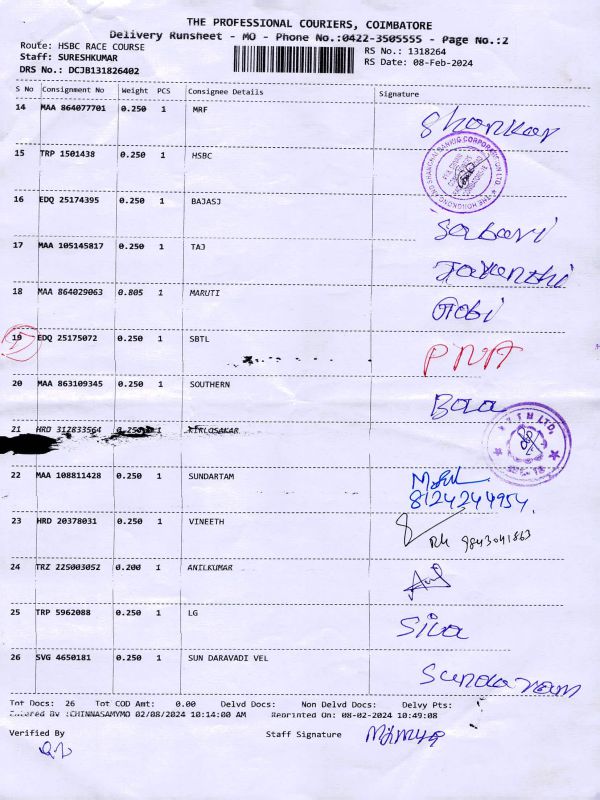 THE PROFESSIONAL COURIERS, COIMBATORE
Delivery Runsheet - MO - Phone No.:0422-3505555 - Page No.:2
Route: HSBC RACE COURSE RS No.: 1318264
Staff: SURESHKUMAR RS Date: 08-Feb-2024
DRS No.: DCJB131826402
S No Consignment No Weight PCS Consignee Details Signature
14 MAA 864077701 0.250 1 MRF Shankar
15 TRP 1501438 0.250 1 HSBC
THE HONGKONG AND SHANGHAI BANKING CORPORATION LTD.
16 EDQ 25174395 0.250 1 BAJASJ Sabari
17 MAA 105145817 0.250 1 TAJ Jayanthi
18 MAA 864029063 0.805 1 MARUTI Gobi
19 EDQ 25175072 0.250 1 SBTL PNA
20 MAA 863109345 0.250 1 SOUTHERN
21 HRD 312833564 0.250 1 KIRLOSAKAR
22 MAA 108811428 0.250 1 SUNDARTAM
8124244954
23 HRD 20378031 0.250 1 VINEETH
9843041863
24 TRZ 225003052 0.200 1 ANILKUMAR Anil
25 TRP 5962088 0.250 1 LG Siva
26 SVG 4650181 0.250 1 SUN DARAVADI VEL Sundaram
Tot Docs: 26 Tot COD Amt: 0.00 Delvd Docs: Non Delvd Docs: Delvy Pts:
Entered By :CHINNASAMYMO 02/08/2024 10:14:00 AM Reprinted On: 08-02-2024 10:49:08
Verified By Staff Signature